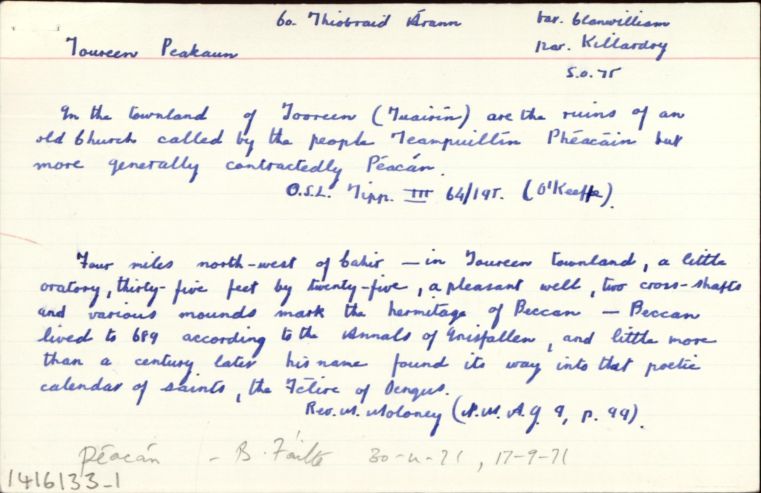 Co. Thiobraid Árann   bar. Clanwilliam
Toureen Peakaun   par. Killardry
S.O. 75
In the townland of Tooreen (Tuairín) are the ruins of an
old Church called by the people Teampuillín Phéacáin but
more generally contractedly Péacán.
O.S.L. Tipp. III 64/195. (O'Keeffe).
Four miles north-west of Cahir — in Toureen townland, a little
oratory, thirty-five feet by twenty-five, a pleasant well, two cross-shafts
and various mounds mark the hermitage of Beccan — Beccan
lived to 689 according to the Annals of Inisfallen, and little more
than a century later his name found its way into that poetic
calendar of saints, the Félire of Oengus.
Rev. M. Moloney (N.M.A.J. 9, p. 99).
Péacán – B. Fáilte 30-4-71, 17-9-71
1416133-1